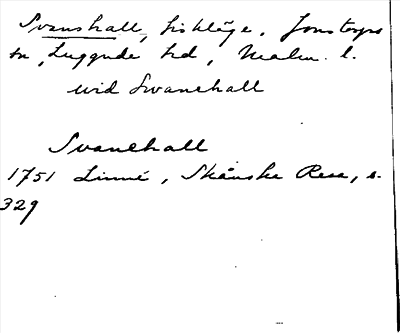 Svanshall, fiskläge, Jonstorps
sn, Luggude hd, Malm. l.
vid Svanehall
Svanehall
1751 Linné, Skånska Resa, s.
329